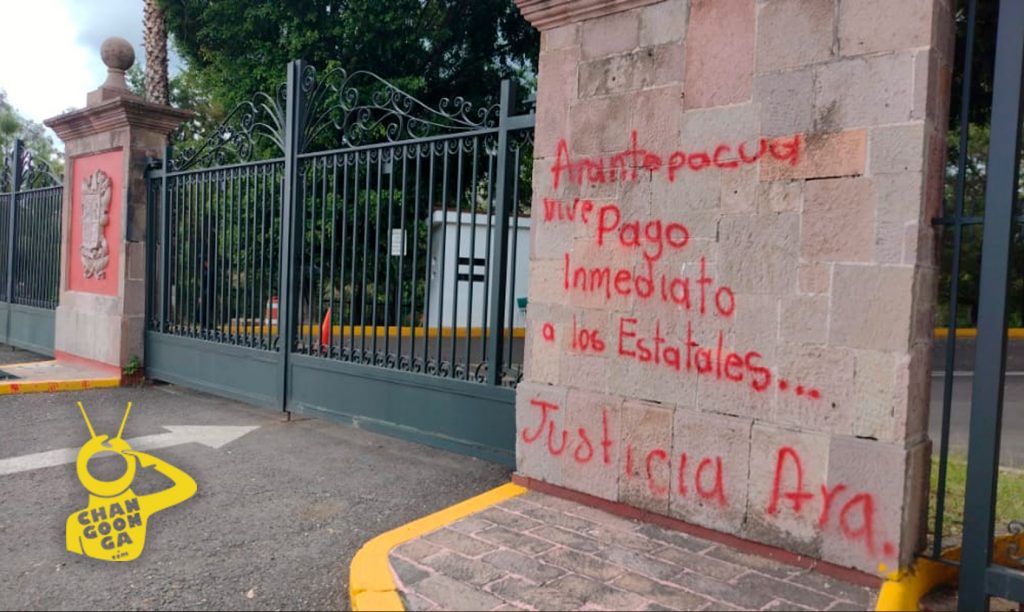 Arantepacua
vive Pago
Inmediato
a los Estatales...
Justicia Ara.
CHAN
GOON
GA
.com